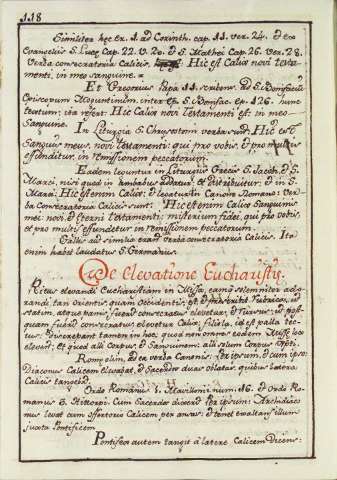 118
Similiter hęc ex 1. ad Corinth. cap. 11. ver. 24. & ex
Evangeliis S. Lucę Cap. 22. v. 20. & S. Mathęi Cap. 26. ver. 28.
Verba consecratoria Calicis. Hic est Calix novi testa-
menti, in meo sanguine.
Et Gregorius Papa 11. scribens ad S. Bonifaciū
Episcopum Moguntinum, inter ep. S. Bonifac. ep. 126. hunc
textum; ita refert: Hic Calix novi Testamenti est: in meo
Sanguine.
In Liturgia S. Chrysostom verba sunt. Hic est
Sanguis meus, novi Testamenti: qui pro vobis, et pro multis
effunditur, in remissionem peccatorum.
Eadem leguntur in Liturgiis Gręcis S. Jacobi, & S.
Marci, nisi quod in ambabus addatur: et distribuitur; & in S.
Marci: Hic est enim Calix: & leguntur in Canone Romano: Ver-
ba Consecratoria Calicis sunt: Hic est enim Calix Sanguinis
mei: novi, & ęterni testamenti: misterium fidei, qui pro vobis,
et pro multis effundetur in remissionem peccatorum.
Gallis autem similia erant verba consecratoria Calicis. Ita
enim habet laudatus S. Germanus.
De elevatione Eucharistię.
Ritus elevandi Eucharistiam in Missa, eamq solemniter ado-
randi, tam Orientis, quam Occidentis;
statim, atque panis, fuerit consecratus elevetur, & rursus, is post-
quam fuerit consecratus elevetur Calix,
tur: discrepant tamen in hoc, quod non omnes eodem Missę loco
elevent; et quod alii Corpus, & Sanguinem: alii solum Corpus
Romę olim, ad ea verba Canonis: Per ipsum, & cum ipso:
Diaconus Calicem elevabat, & Sacerdos duas oblatas, quibus latera
Calicis tangebat.
Ordo Romanus 1. Mavillonii num. 16. & Ordo Ro-
manus & Hittorpi. Cum Sacerdos dixerit Per ipsum: Archidiaco-
nus levat cum offertorio Calicem per ansas, & tenet exaltans illum
juxta Pontificem
Pontifex autem tangit à latere Calicem dicens: